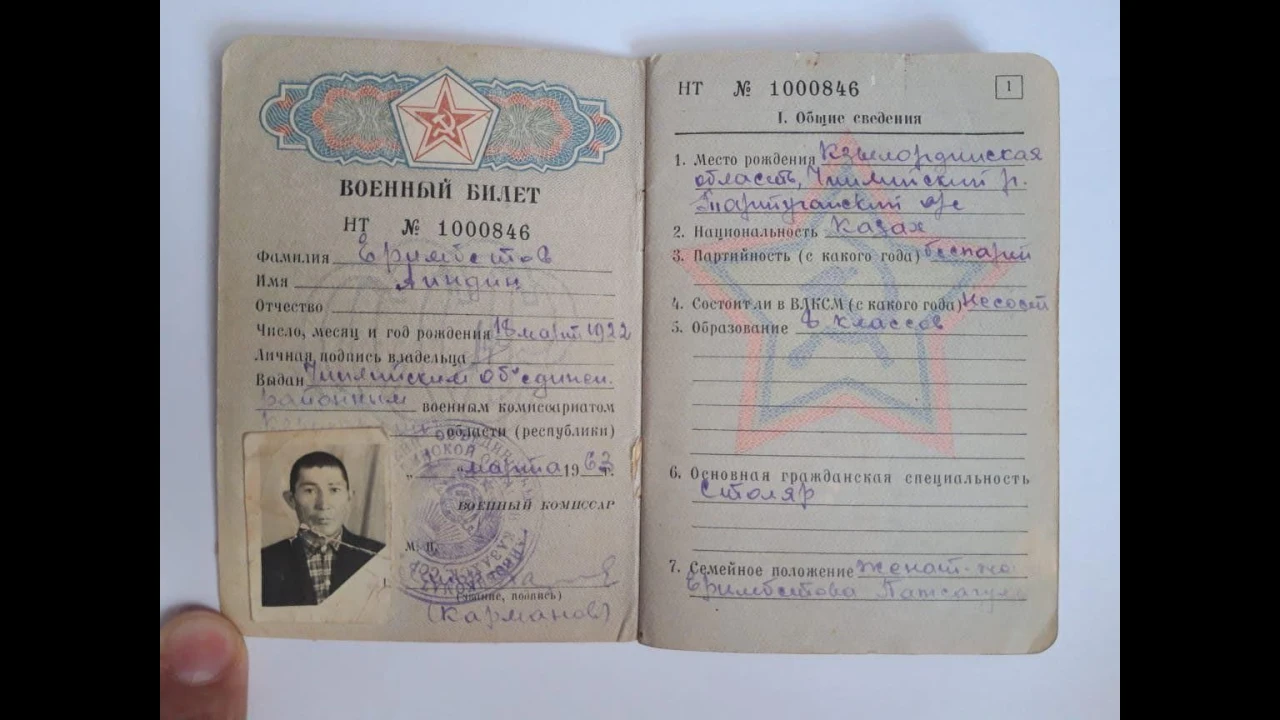 ВОЕННЫЙ БИЛЕТ
НТ № 1000846
Фамилия Еримбетов
Имя
Отчество
Число, месяц и год рождения 18 март 1922
Личная подпись владельца
Выдан Чиилийским об'единен.
районным военным комиссариатом
области (республики)
" " марта 1962 г.
ВОЕННЫЙ КОМИССАР
М. П.
(звание, подпись)
(Карманов)
НТ № 1000846
1
I. Общие сведения
1. Место рождения Кзылординская
область, Чиилийский р.
Тартугайский а/с
2. Национальность Казах
3. Партийность (с какого года) беспарт
4. Состоит ли в ВЛКСМ (с какого года) Не сост
5. Образование классов
6. Основная гражданская специальность
Столяр
7. Семейное положение женат-жа
Еримбетова